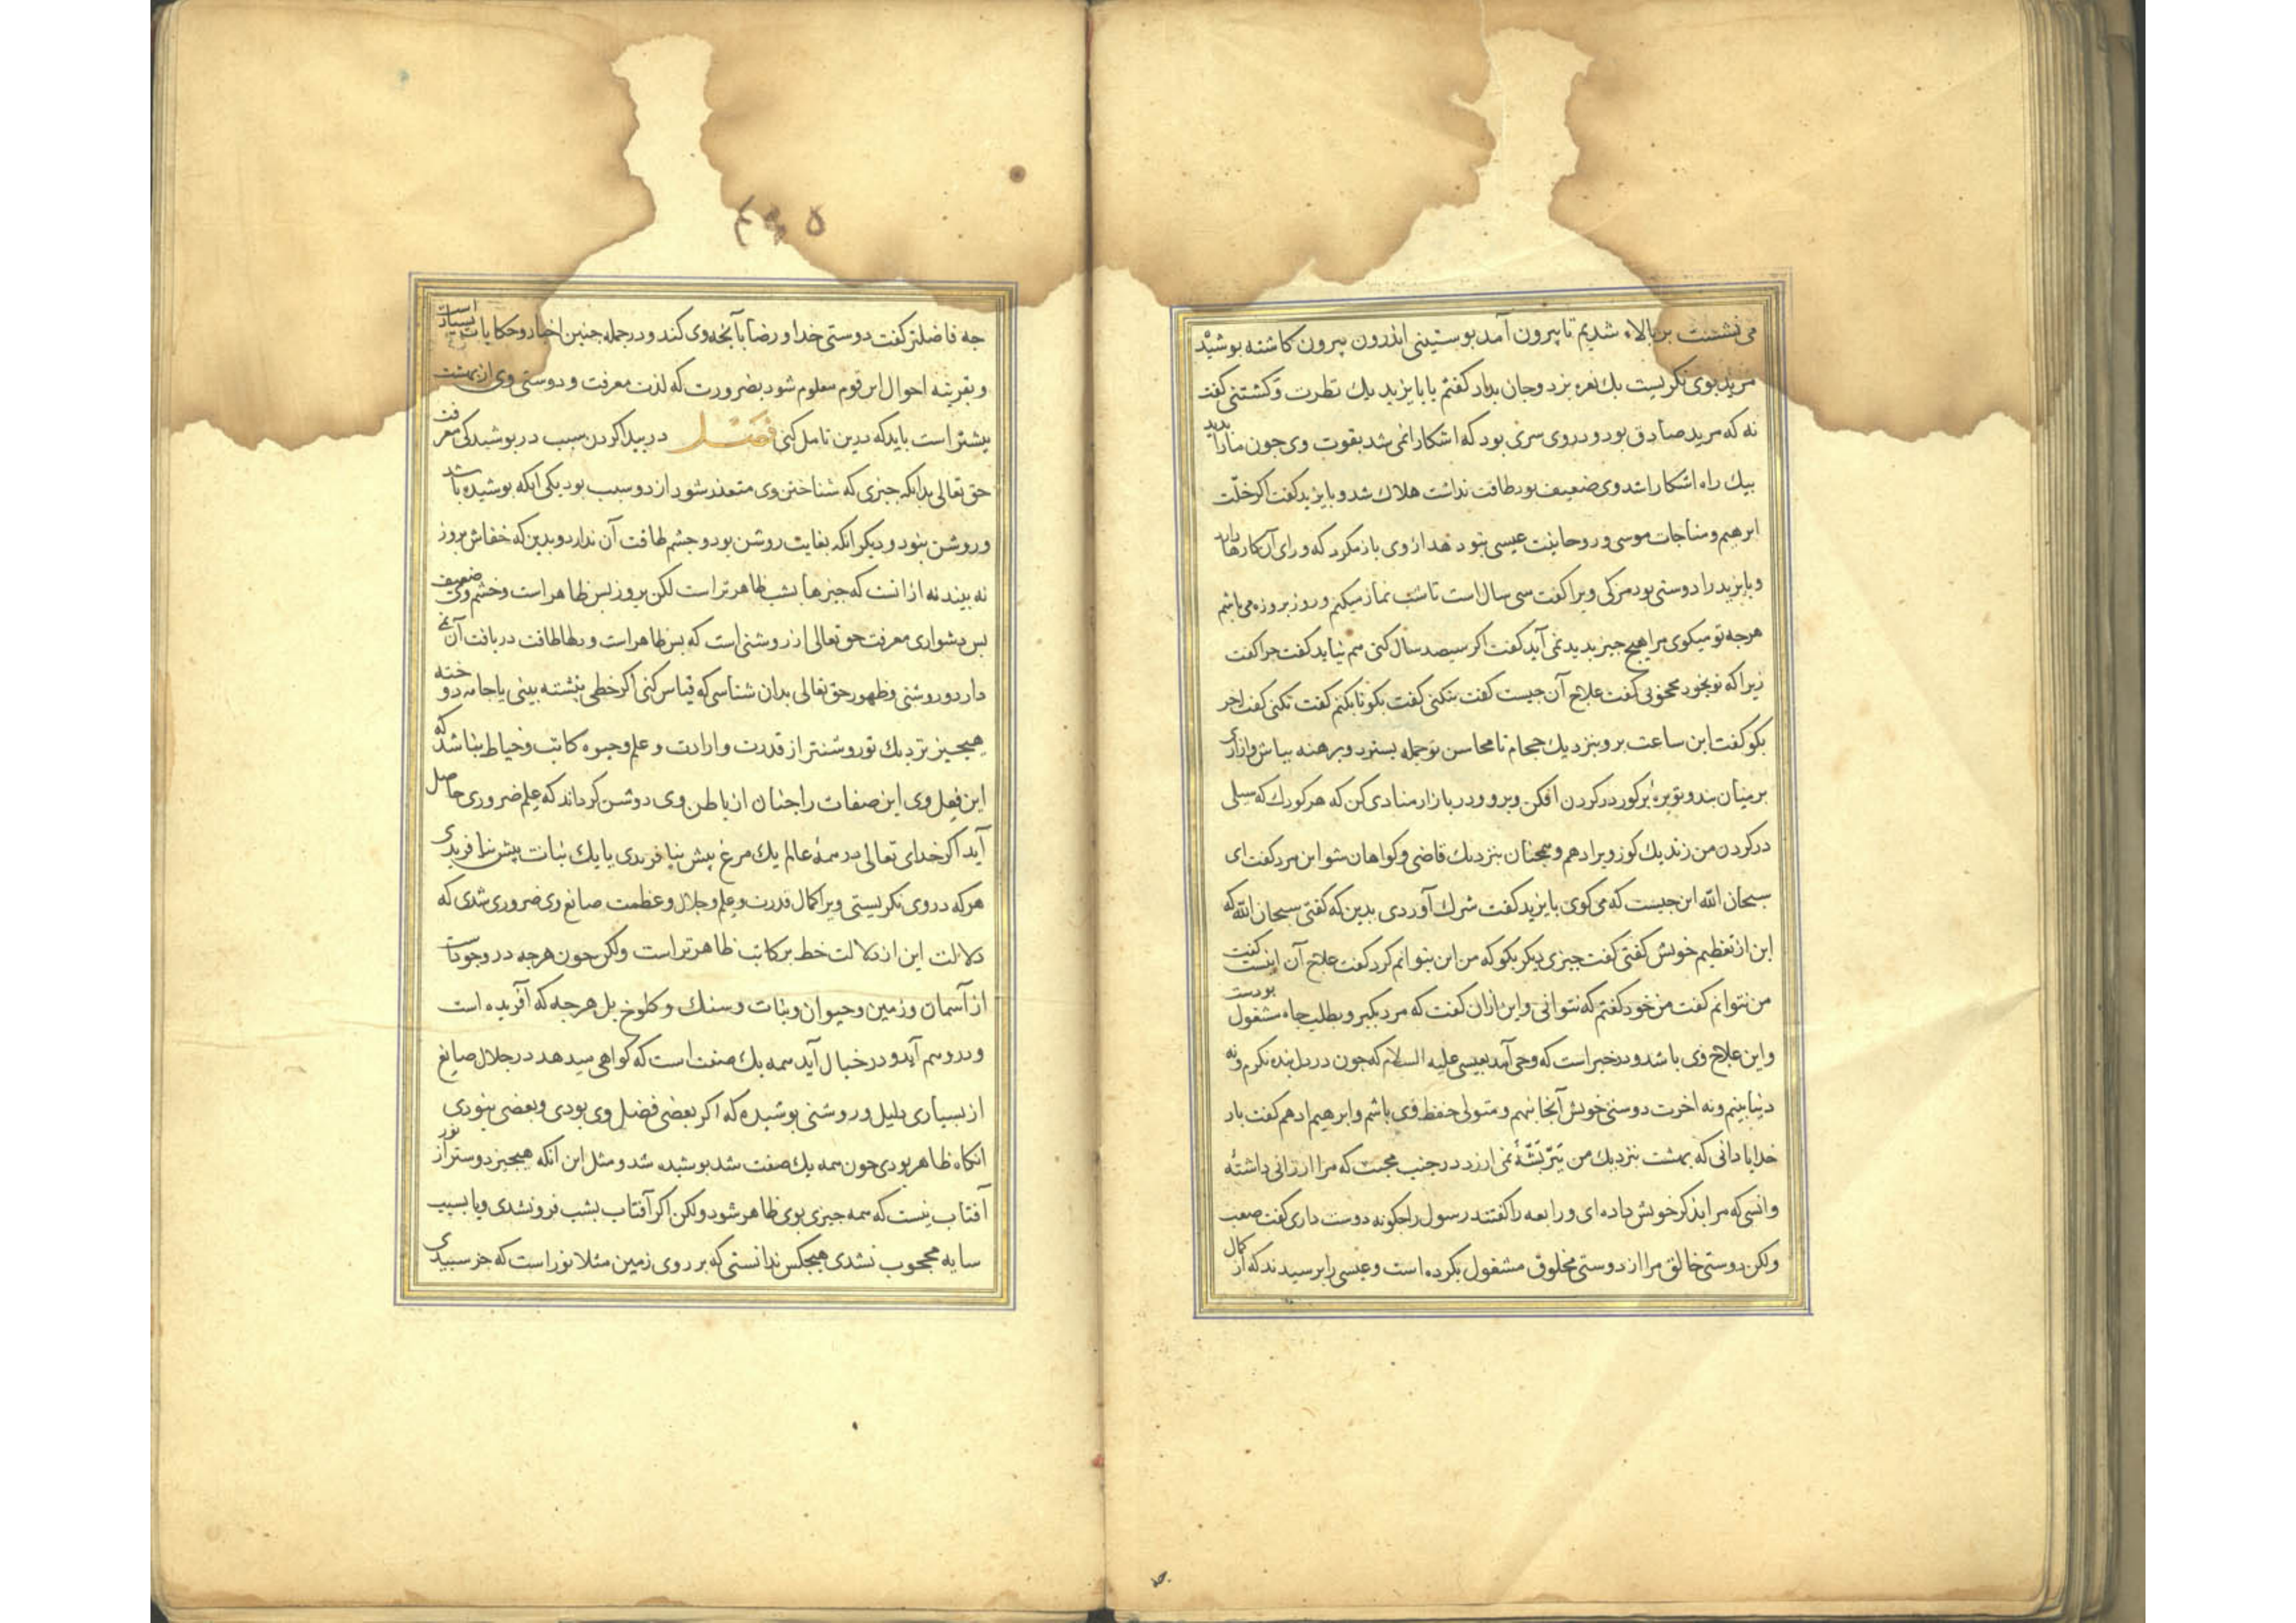 می نشتنت بربالاء شدیم تا بیرون آمد بوستینی اندرون بیرون کاشته بوشیذ
مرید بوی نکریست یك نعره بزد و جان بداد کفتم یا بایزید یك نظرت و کشتنی کفت
نه که مرید صادق بود و در وی سری بود که اشکارا نمی شد بقوت وی جون مارا بدید
بیك راه اشکارا شد وی ضعیف بود طاقت نداشت هلاك شد و بایزید کفت اکر خلّت
ابرهیم و مناجات موسی و روحانیت عیسی بتو دهد از وی باز مکرد که ورای آن کارها دارد
و بایزید را دوستی بود مزکی ویرا کفت سی سال است تا شب نماز میکنم و روز بروزه می باشم
هرجه تو میکوی مرا هیچ جیز بدید نمی آید کفت اکر سیصد سال کنی هم نیاید کفت جرا کفت
زیرا که تو بخود محجوبی کفت علاج آن جیست کفت بنکنی کفت بکو تا بکنم کفت نکنی کفت اخر
بکو کفت این ساعت برو بنزدیك حجام تا محاسن تو جمله بسترد و برهنه بباش و ازاری
بر میان بند و توبره بر کوز در کردن افکن و برو و در بازار منادی کن که هر کودك که سیلی
در کردن من زند یك کوز ویرا دهم و همجنان بنزدیك قاضی و کواهان شو این مرد کفت ای
سبحان الله این جیست که می کوی بایزید کفت شرك آوردی بدین که کفتی سبحان الله که
این از تعظیم خویش کفتی کفت جیزی دیکر بکو که من این بنتوانم کرد کفت علاج آن اینست کفت
من نتوانم کفت من خود کفتم که نتوانی و این ازان کفت که مرد بکبر و بطلب جاه مشغول بودست
و این علاج وی باشد و در خبر است که وحی آمد بعیسی علیه السلام که جون در دل بنده نکرم و نه
دنیا بینم و نه اخرت دوستی خویش آنجا بنهم و متولی حفظ وی باشم و ابرهیم ادهم کفت بار
خدایا دانی که بهشت بنزدیك من پرّ پشّهٔ نمی ارزد در جنب محبت که مرا ارزانی داشتهٔ
و انسی که مرا بذکر خویش داده ای و رابعه را کفتند رسول را جکونه دوست داری کفت صعب
ولکن دوستی خالق مرا از دوستی مخلوق مشغول بکرده است و عیسی را برسیدند که از اعمال
جه فاضلتر کفت دوستی خدا و رضا بآنجه وی کند و در جمله جنین اخبار و حکایات بسیار است
و بقرینه احوال این قوم معلوم شود بضرورت که لذت معرفت و دوستی وی از بهشت
بیشتر است باید که درین تامل کنی فصل در بیدا کردن سبب در بوشیدکی معرفت
حق تعالی بدانکه جیزی که شناختن وی متعذر شود از دو سبب بود یکی انکه بوشیده باشد
و روشن بنود و دیکر انکه بغایت روشن بود و جشم طاقت آن ندارد و بدین که خفاش بروز
نه بیند نه از انست که جیزها بشب ظاهرتر است لکن بروز بس ظاهر است و جشم وی ضعیف
بس دشواری معرفت حق تعالی از روشنی است که بس ظاهر است و دلها طاقت دریافت آن نمی
دارد و روشنی و ظهور حق تعالی بدان شناسی که قیاس کنی اکر خطی بنشته بینی یا جامه دوخته
هیجیز نزدیك تو روشنتر از قدرت و ارادت و علم و حیوه کاتب و خیاط نباشد که
این فعل وی این صفات را جنان از باطن وی روشن کرداند که علم ضروری حاصل
آید اکر خدای تعالی در همهٔ عالم یك مرغ بیش نیافریدی یا یك نبات بیش نیافریدی
هر که در وی نکریستی ویرا کمال قدرت و علم و جلال و عظمت صانع وی ضروری شدی که
دلالت این از دلالت خط بر کاتب ظاهرتر است ولکن جون هرجه در وجود است
از آسمان و زمین و حیوان و نبات و سنك و کلوخ بل هرجه که آفریده است
و در وهم آید و در خیال آید همه یك صفت است که کواهی میدهد در جلال صانع
از بسیاری دلیل و روشنی بوشیده که اکر بعضی فضل وی بودی و بعضی بنودی
انکاه ظاهر بودی جون همه یك صفت شد بوشیده شد و مثل این انکه هیجیز روشنتر از نور
آفتاب نیست که همه جیزی بوی ظاهر شود ولکن اکر آفتاب بشب فرونشدی و یا بسبب
سایه محجوب نشدی هیجکس ندانستی که بر روی زمین مثلا نور است که جز سبیدی